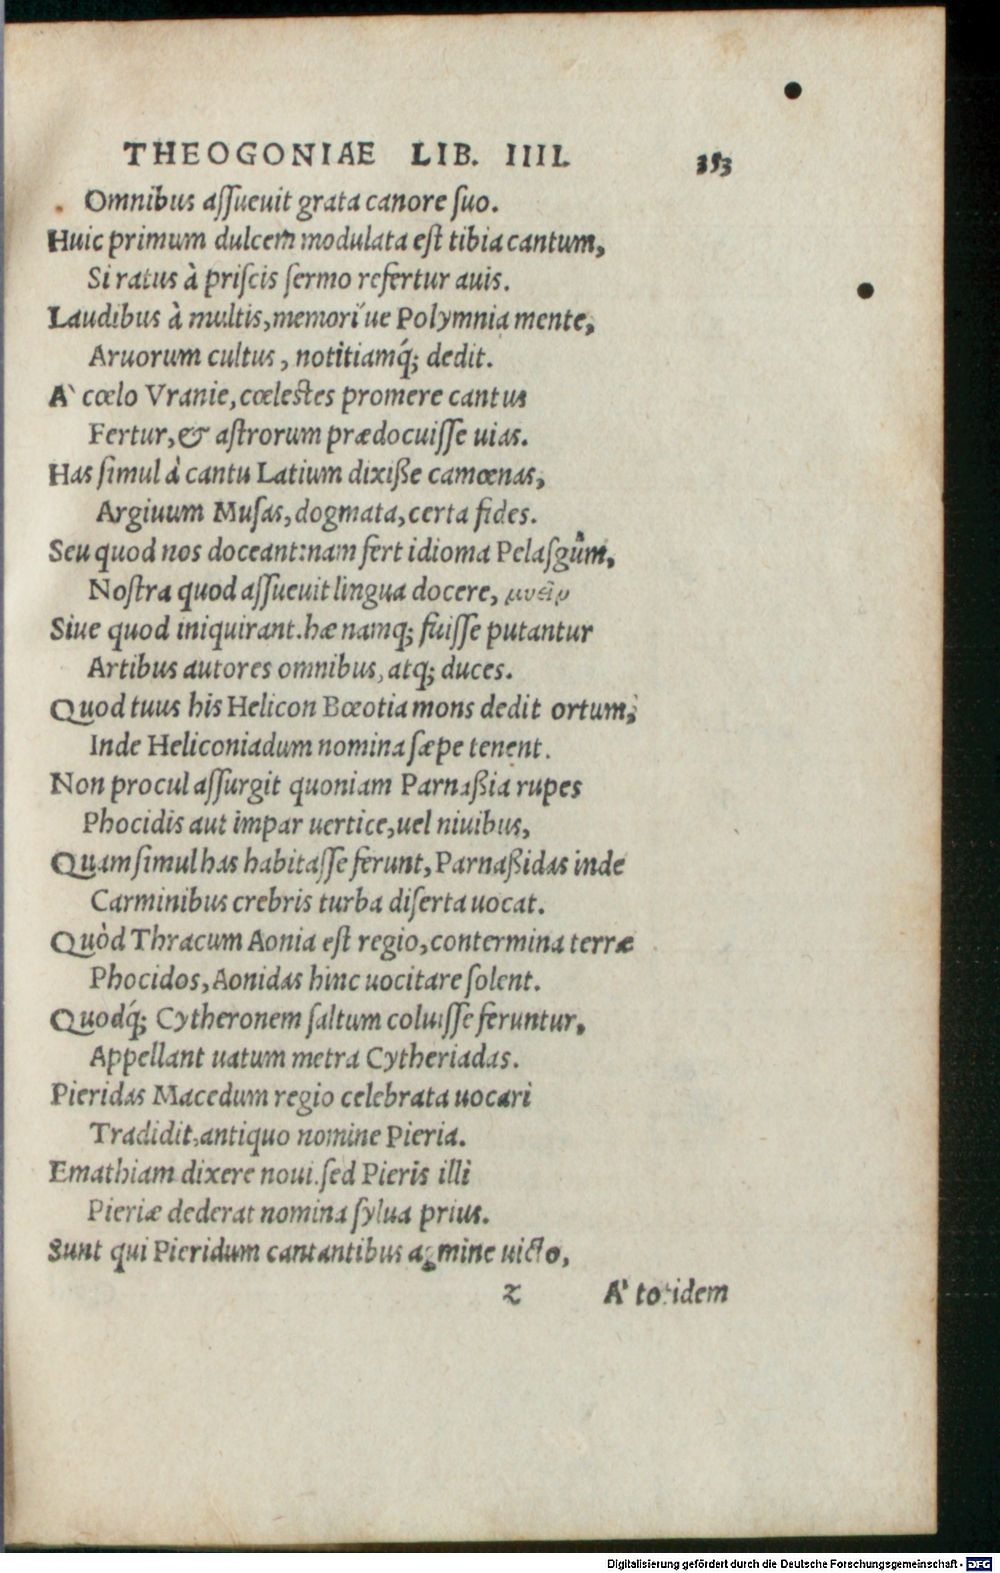 THEOGONIAE LIB. IIII. 353
Omnibus aſſueuit grata canore ſuo.
Huic primum dulcem modulata eſt tibia cantum,
Si ratus à priſcis ſermo refertur auis.
Laudibus à multis, memori'ue Polymnia mente,
Aruorum cultus, notitiamq́; dedit.
A` cœlo Vranie, cœlestes promere cantus
Fertur, & aſtrorum prædocuiſſe uias.
Has ſimul à cantu Latium dixiße camœnas,
Argiuum Muſas, dogmata, certa fides.
Seu quod nos doceant: nam fert idioma Pelaſgûm,
Noſtra quod aſſueuit lingua docere, μυεῖν
Siue quod iniquirant. hæ namq; fuiſſe putantur
Artibus autores omnibus, atq; duces.
Quod tuus his Helicon Bœotia mons dedit ortum;
Inde Heliconiadum nomina ſæpe tenent.
Non procul aſſurgit quoniam Parnaßia rupes
Phocidis aut impar uertice, uel niuibus,
Quam ſimul has habitaſſe ferunt, Parnaßidas inde
Carminibus crebris turba diſerta uocat.
Quòd Thracum Aonia eſt regio, contermina terræ
Phocidos, Aonidas hinc uocitare ſolent.
Quodq́; Cytheronem ſaltum coluiſſe feruntur,
Appellant uatum metra Cytheriadas.
Pieridas Macedum regio celebrata uocari
Tradidit, antiquo nomine Pieria.
Emathiam dixere noui. ſed Pieris illi
Pieriæ dederat nomina ſylua prius.
Sunt qui Pieridum cantantibus agmine uicto,
z A` totidem
Digitalisierung gefördert durch die Deutsche Forschungsgemeinschaft - DFG